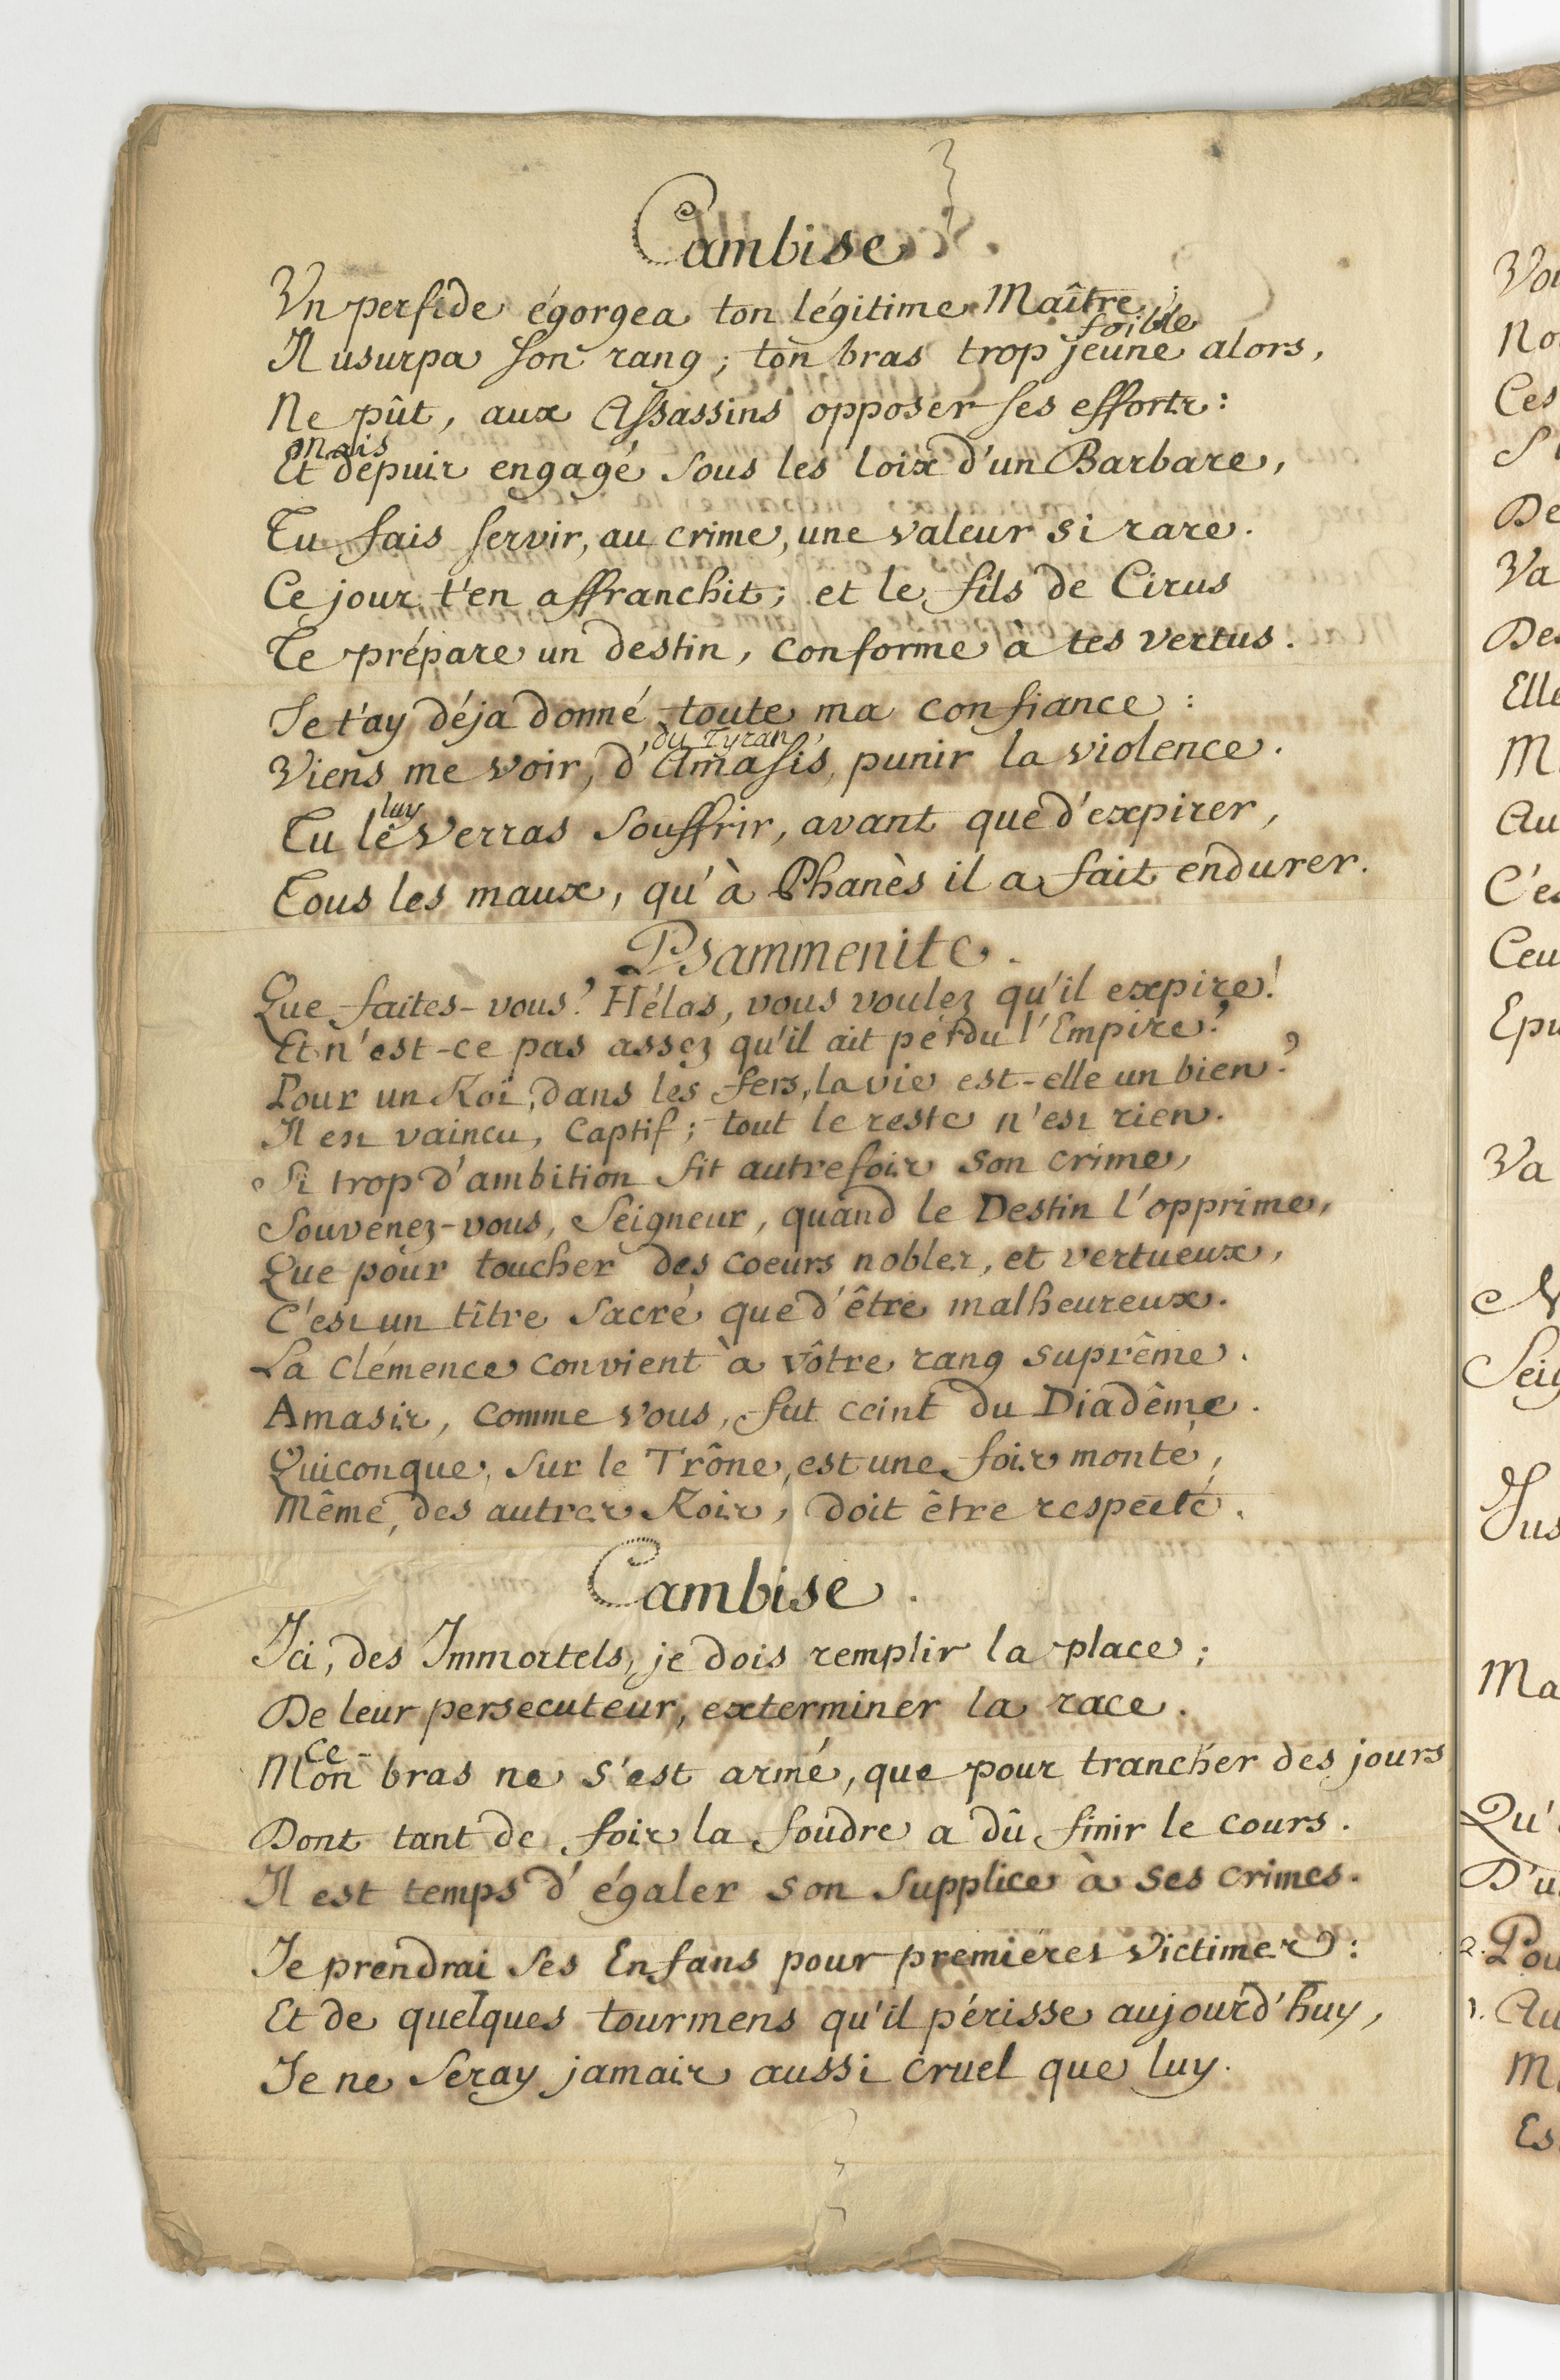 Cambise.
Un perfide égorgea ton légitime Maître ;
foible
Il usurpa son rang ; ton bras trop jeune alors,
Ne pût, aux Assassins opposer ses efforts :
Mais
Et depuis engagé sous les loix d'un Barbare,
Tu fais servir, au crime, une valeur si rare.
Ce jour t'en affranchit ; et le fils de Cirus
Te prépare un destin, conforme à tes vertus.
Je t'ay déja donné toute ma confiance :
du Tyran
Viens me voir, d'Amasis, punir la violence.
luy
Tu le verras souffrir, avant que d'expirer,
Tous les maux, qu'à Phanès il a fait endurer.
Psammenite.
Que faites-vous ? Hélas, vous voulez qu'il expire !
Et n'est-ce pas assez qu'il ait perdu l'Empire ?
Pour un Roi, dans les fers, la vie est-elle un bien ?
Il est vaincu, Captif ; tout le reste n'est rien.
Si trop d'ambition fit autrefois son crime,
Souvenez-vous, Seigneur, quand le Destin l'opprime,
Que pour toucher des coeurs nobles, et vertueux,
C'est un tître sacré que d'être malheureux.
La Clémence convient à vôtre rang suprême.
Amasis, comme vous, fut ceint du Diadême.
Quiconque, sur le Trône, est une fois monté,
Même, des autres Rois, doit être respecté.
Cambise.
Ici, des Immortels, je dois remplir la place ;
De leur persecuteur, exterminer la race.
Ce
Mon bras ne s'est armé, que pour trancher des jours
Dont tant de fois la foudre a dû finir le cours.
Il est temps d'égaler son supplice à ses crimes.
Je prendrai ses Enfans pour premieres victimes :
Et de quelques tourmens qu'il périsse aujourd'huy,
Je ne seray jamais aussi cruel que luy.